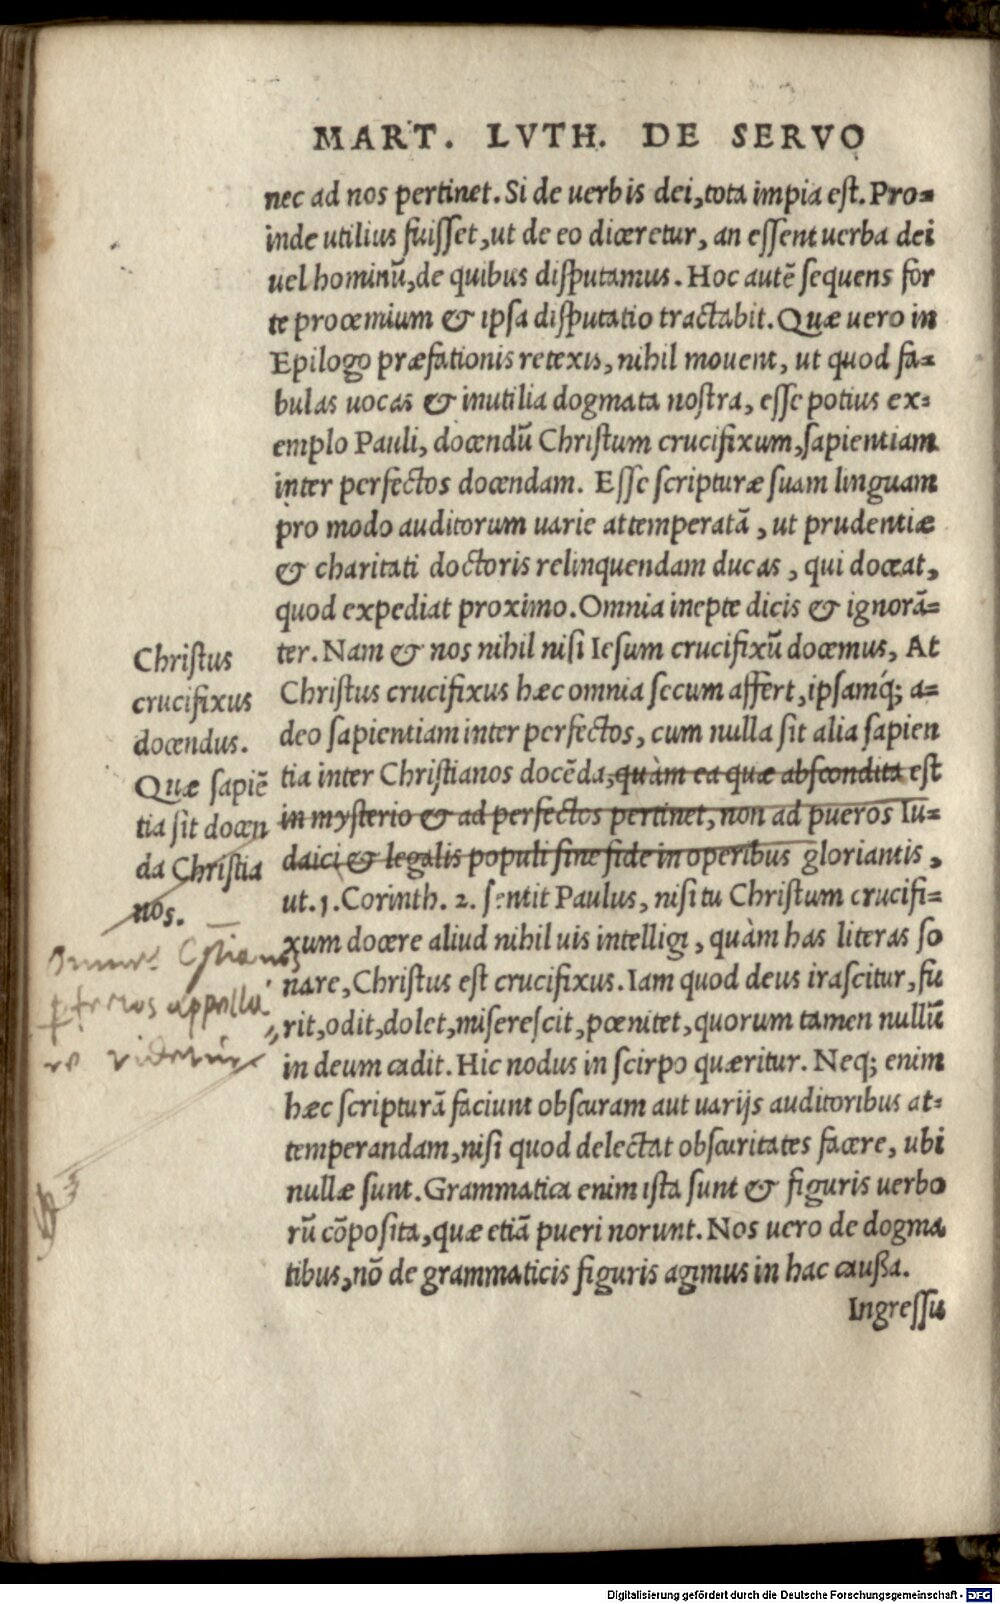 MART. LVTH. DE SERVO
nec ad nos pertinet. Si de uerbis dei, tota impia est. Pro=
inde utilius fuisset, ut de eo diceretur, an essent uerba dei
uel hominū, de quibus disputamus. Hoc autē sequens for
te proœmium & ipsa disputatio tractabit. Quæ uero in
Epilogo præfationis retexis, nihil mouent, ut quod fa=
bulas uocas & inutilia dogmata nostra, esse potius ex=
emplo Pauli, docendū Christum crucifixum, sapientiam
inter perfectos docendam. Esse scripturæ suam linguam
pro modo auditorum uarie attemperatā, ut prudentiæ
& charitati doctoris relinquendam ducas, qui doceat,
quod expediat proximo. Omnia inepte dicis & ignorā=
ter. Nam & nos nihil nisi Iesum crucifixū docemus, At
Christus crucifixus hæc omnia secum affert, ipsamq́; a=
deo sapientiam inter perfectos, cum nulla sit alia sapien
tia inter Christianos docēda, quàm ea quæ abscondita est
in mysterio & ad perfectos pertinet, non ad pueros Iu=
daici & legalis populi sine fide in operibus gloriantis,
ut.1.Corinth. 2. sentit Paulus, nisi tu Christum crucifi=
xum docere aliud nihil uis intelligi, quàm has literas so
nare, Christus est crucifixus. Iam quod deus irascitur, fu
rit, odit, dolet, miserescit, pœnitet, quorum tamen nullū
in deum cadit. Hic nodus in scirpo quæritur. Neq; enim
hæc scripturā faciunt obscuram aut uarijs auditoribus at=
temperandam, nisi quod delectat obscuritates facere, ubi
nullæ sunt. Grammatica enim ista sunt & figuris uerbo
rū cōposita, quæ etiā pueri norunt. Nos uero de dogma
tibus, nō de grammaticis figuris agimus in hac caußa.
Ingressu
Christus
crucifixus
docendus.
Quæ sapiē
tia sit docen
da Christia
nos.
appella
re videtur
Digitalisierung gefördert durch die Deutsche Forschungsgemeinschaft - DFG